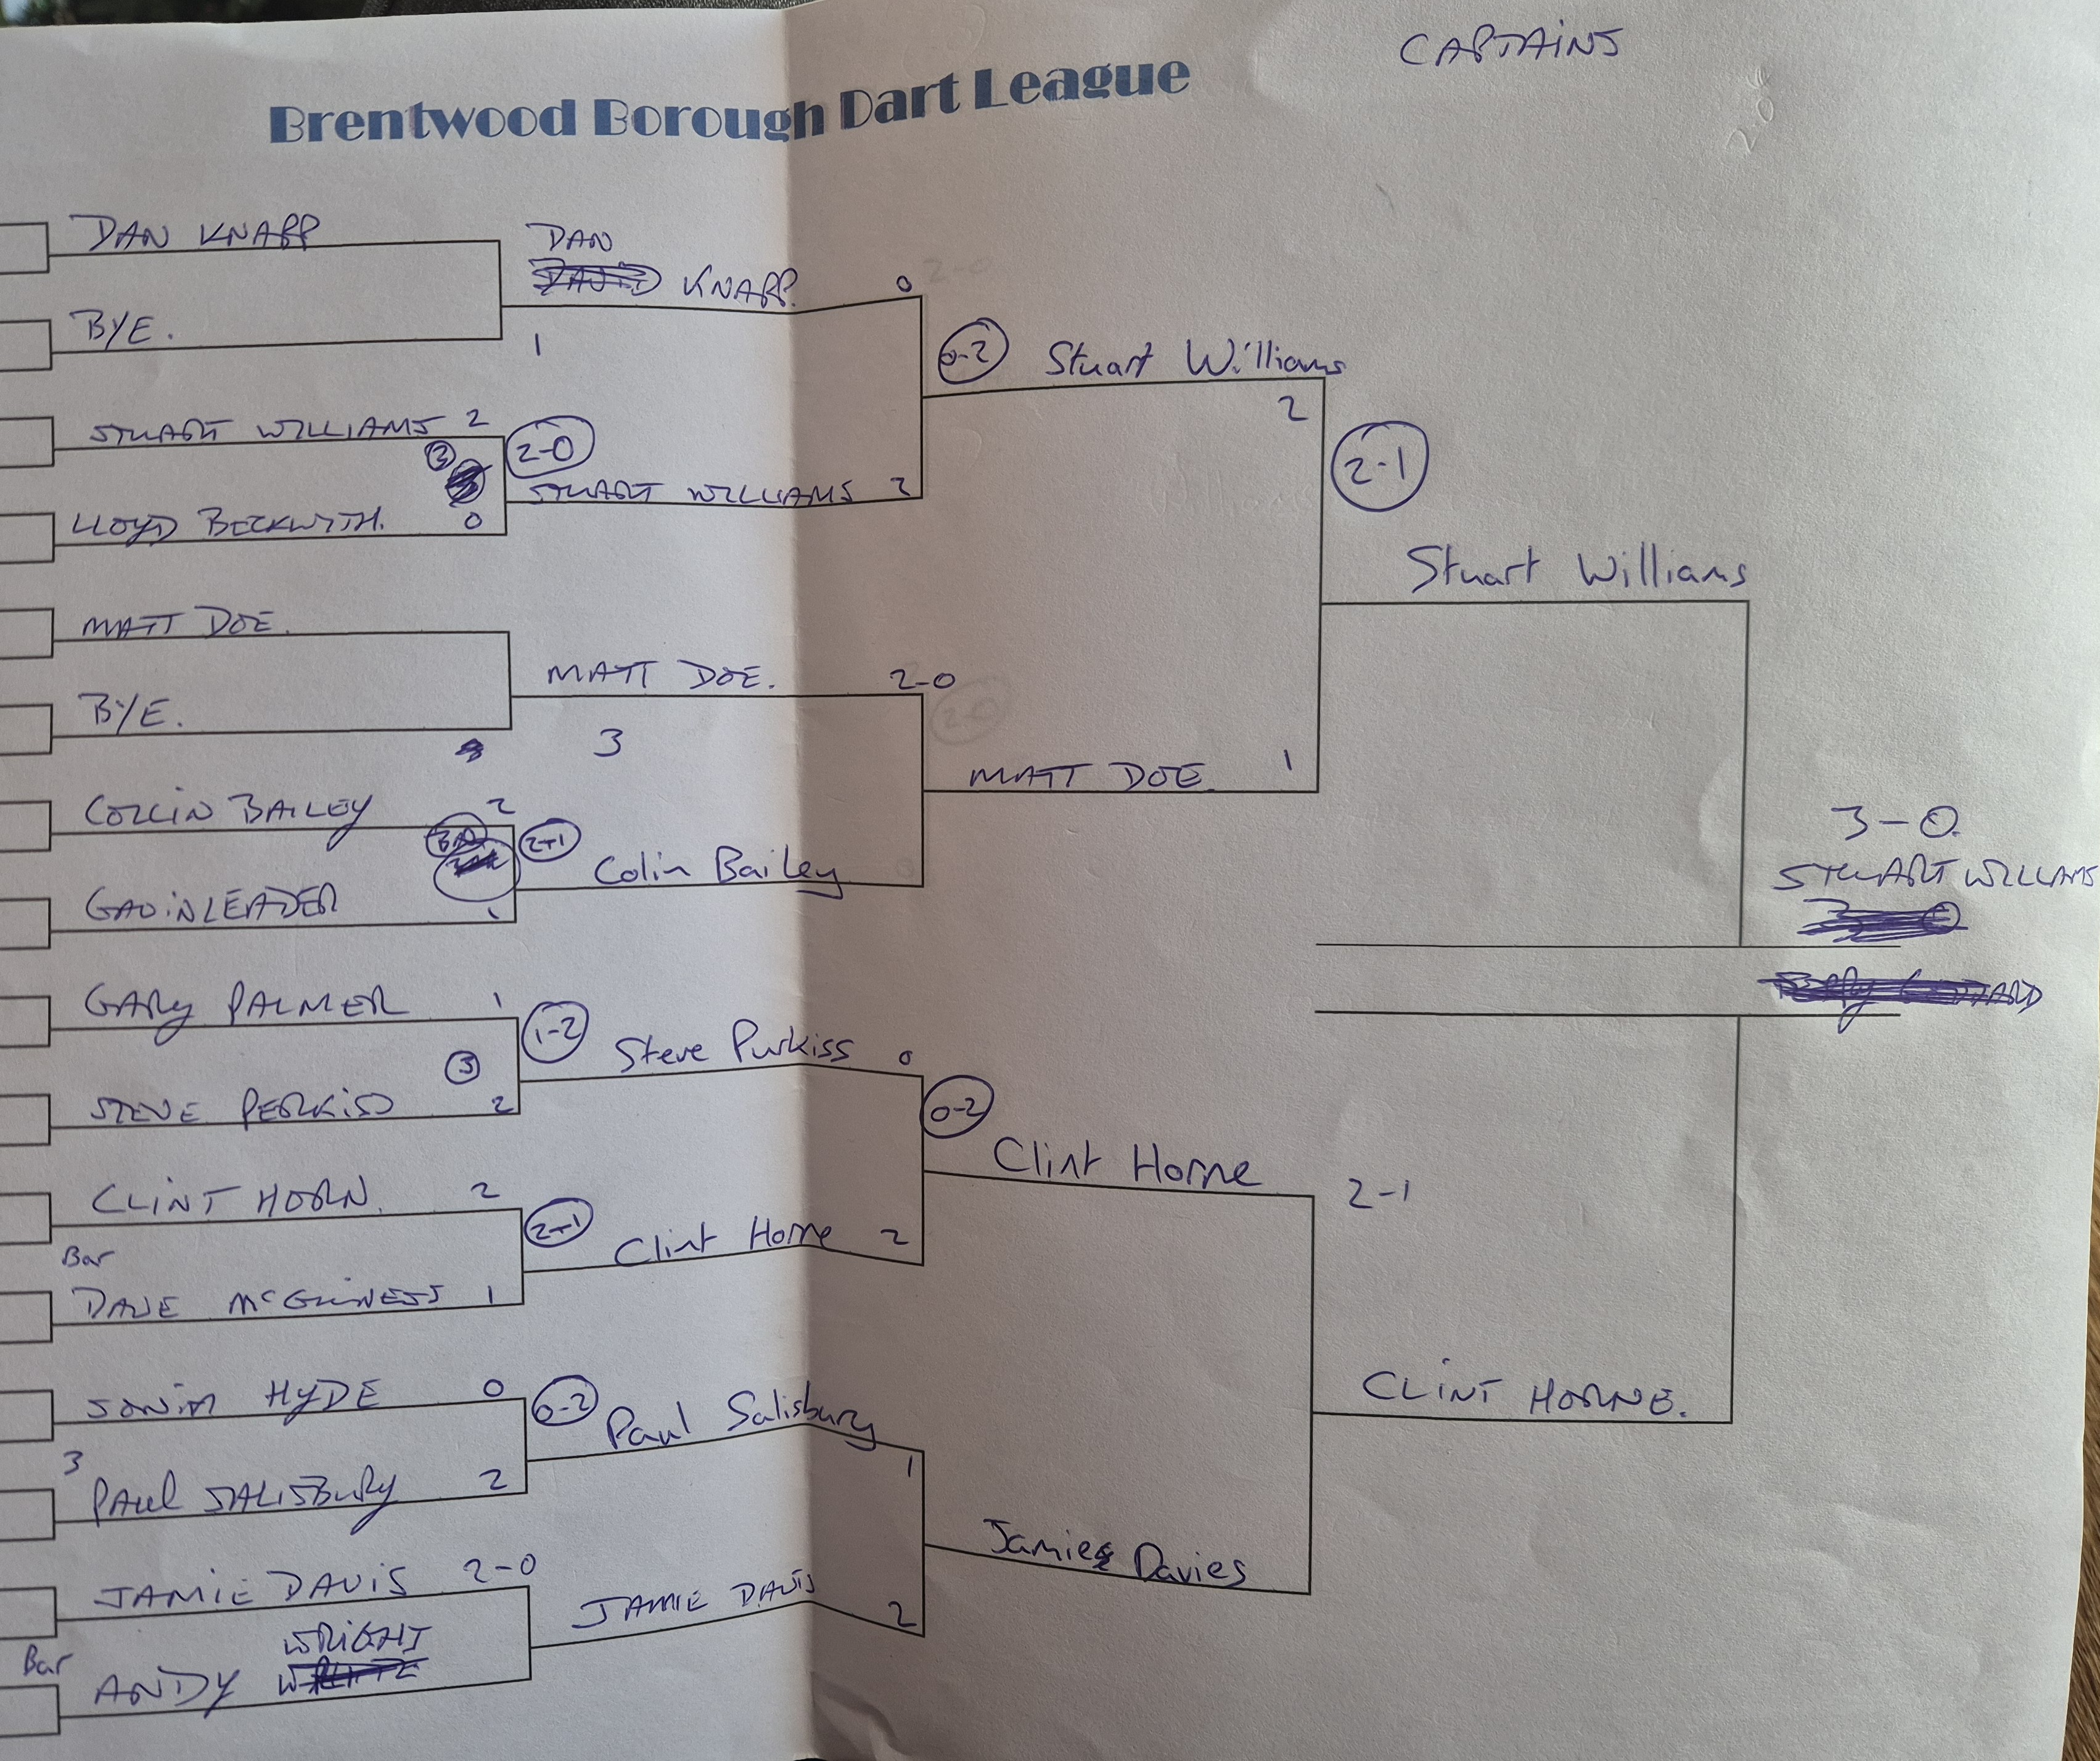 CAPTAINS
Brentwood Borough Dart League
DAN KNAPP
BYE.
STUART WILLIAMS 2
3
LLOYD BECKWITH. 0
MATT DOE.
BYE.
COLLIN BAILEY 2
GAVIN LEADER 1
GARY PALMER 1
3
STEVE PERKISS 2
CLINT HORN. 2
Bar
DAVE McGUINESS 1
HYDE 0
3
PAUL SALISBURY 2
JAMIE DAVIS 2-0
Bar
WRIGHT
ANDY
DAN
KNAPP. 0
1
2-0
STUART WILLIAMS 2
MATT DOE. 2-0
3
2-1
Colin Bailey
1-2
Steve Purkiss 0
2-1
Clint Horne 2
0-2
Paul Salisbury
1
JAMIE DAVIS 2
0-2 Stuart Williams
2
MATT DOE 1
0-2
Clint Horne
2-1
Jamie Davies
2-1
Stuart Williams
CLINT HORNE.
3-0.
STUART WILLIAMS